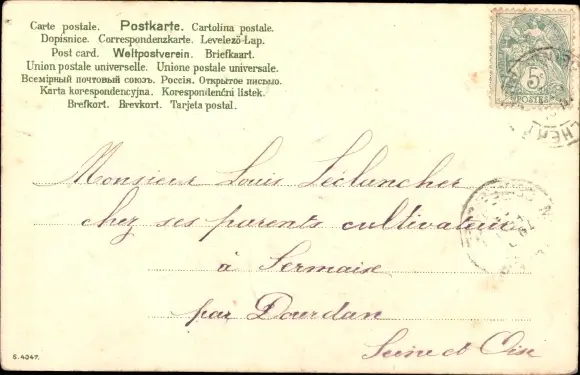 Carte postale. Postkarte. Cartolina postale.
Dopisnice. Correspondenzkarte. Levelező-Lap.
Post card. Weltpostverein. Briefkaart.
Union postale universelle. Unione postale universale.
Всемірный почтовый союзъ. Россія. Открытое письмо.
Karta korespondencyjna. Korespondenční listek.
Brefkort. Brevkort. Tarjeta postal.
5c
POSTES
Monsieur Louis Léclancher
chez ses parents cultivateurs
à Sermaise
par Dourdan
Seine et Oise
S. 4047.